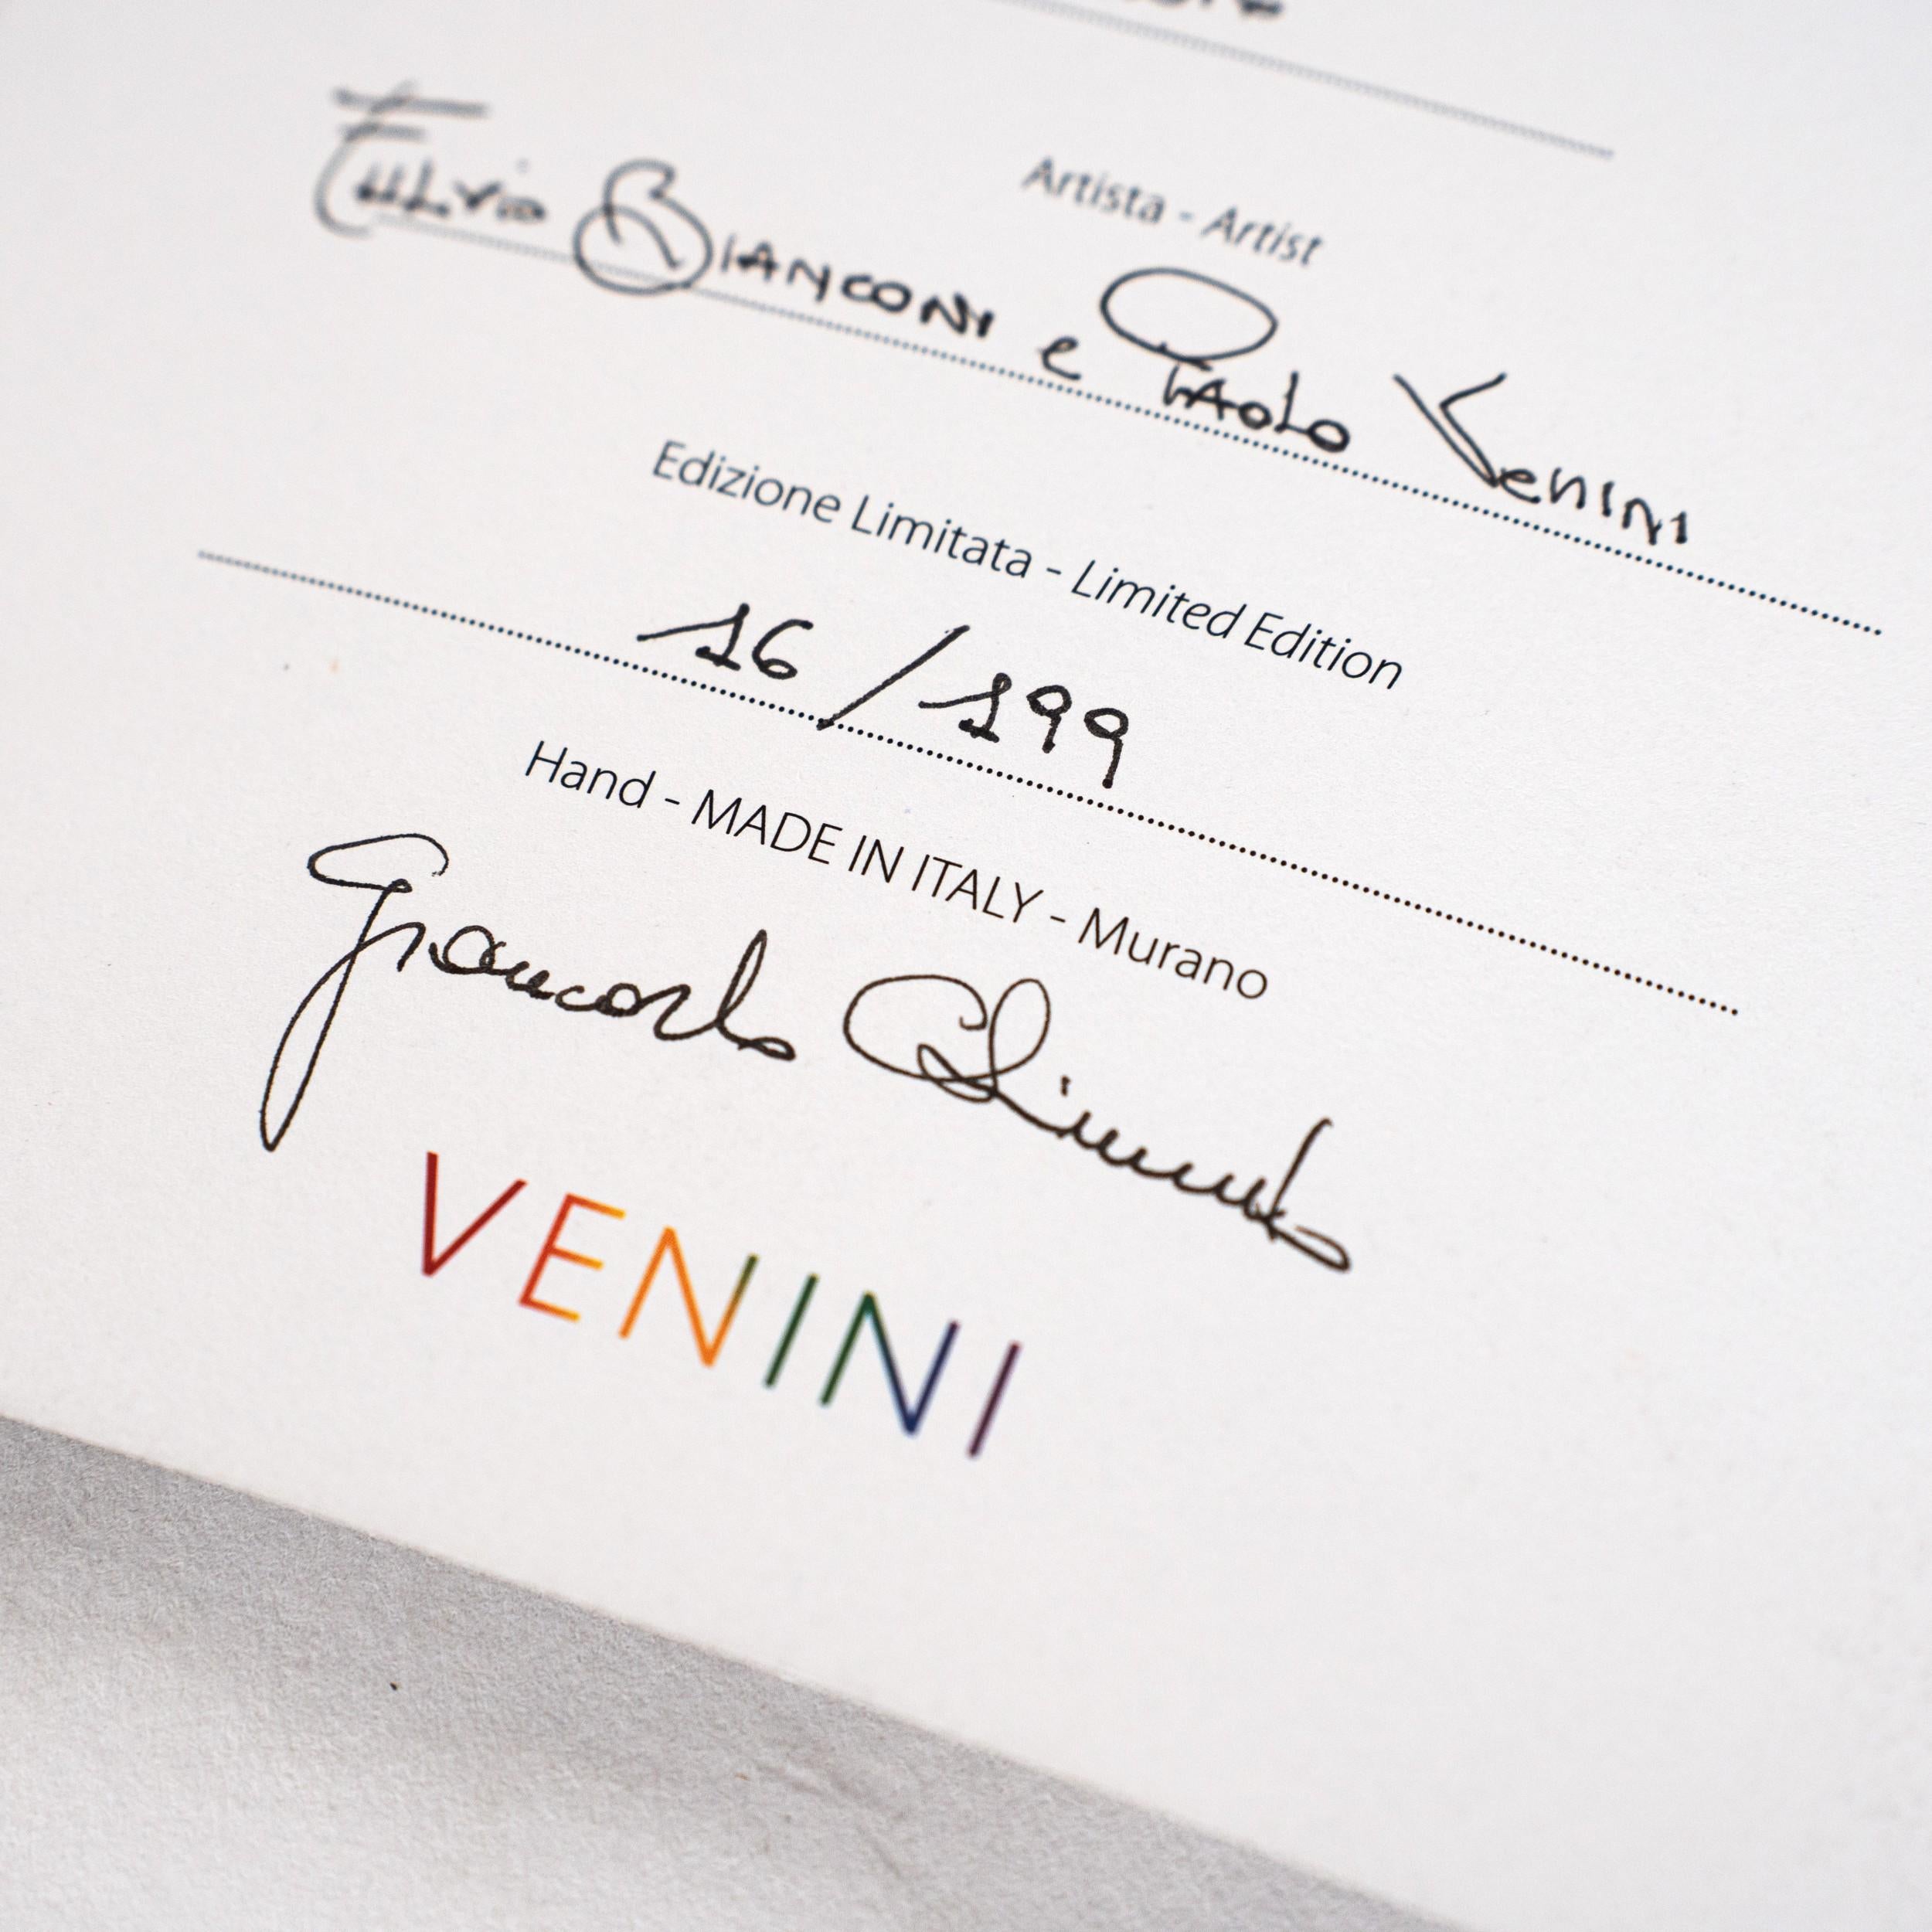 Artista - Artist
Fulvio Bianconi e Paolo Venini
Edizione Limitata - Limited Edition
16/199
Hand - MADE IN ITALY - Murano
Giancarlo Chimento
VENINI